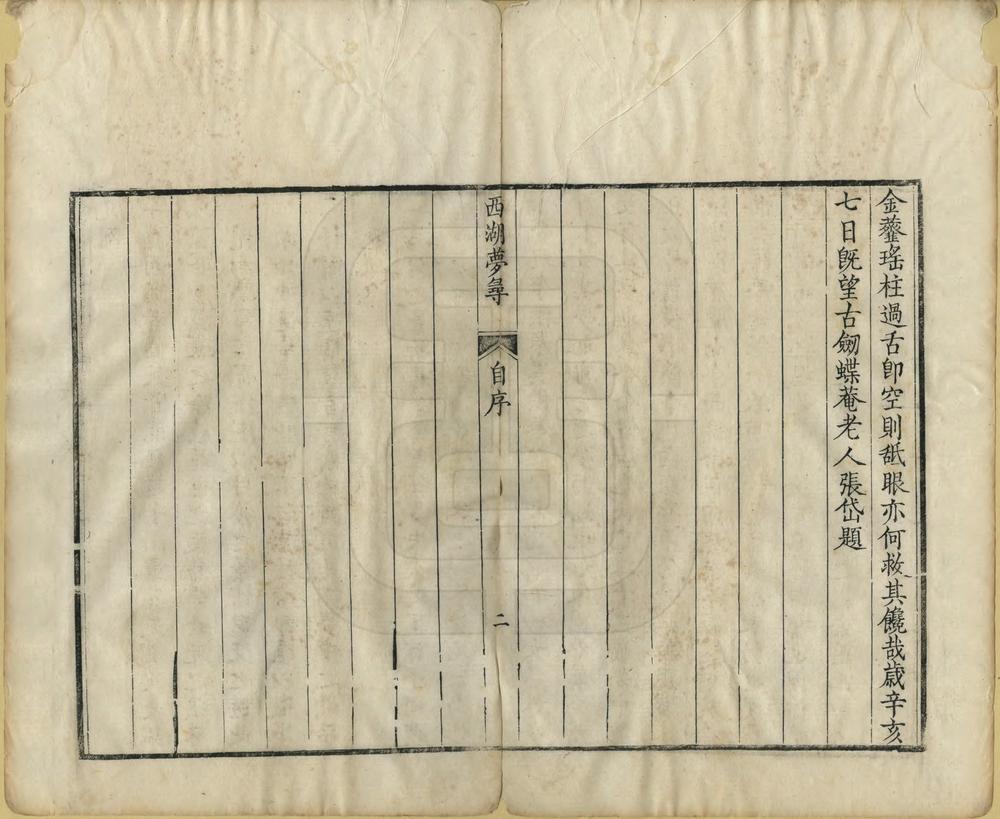 金虀瑤柱過舌卽空則舐眼亦何救其饞哉歲辛亥
七日旣望古劒蝶菴老人張岱題
西湖夢尋
自序
二